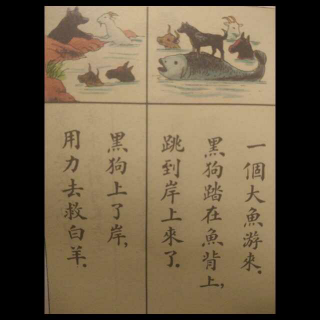 一個大魚游來．
黑狗踏在魚背上，
跳到岸上來了．
黑狗上了岸，
用力去救白羊．